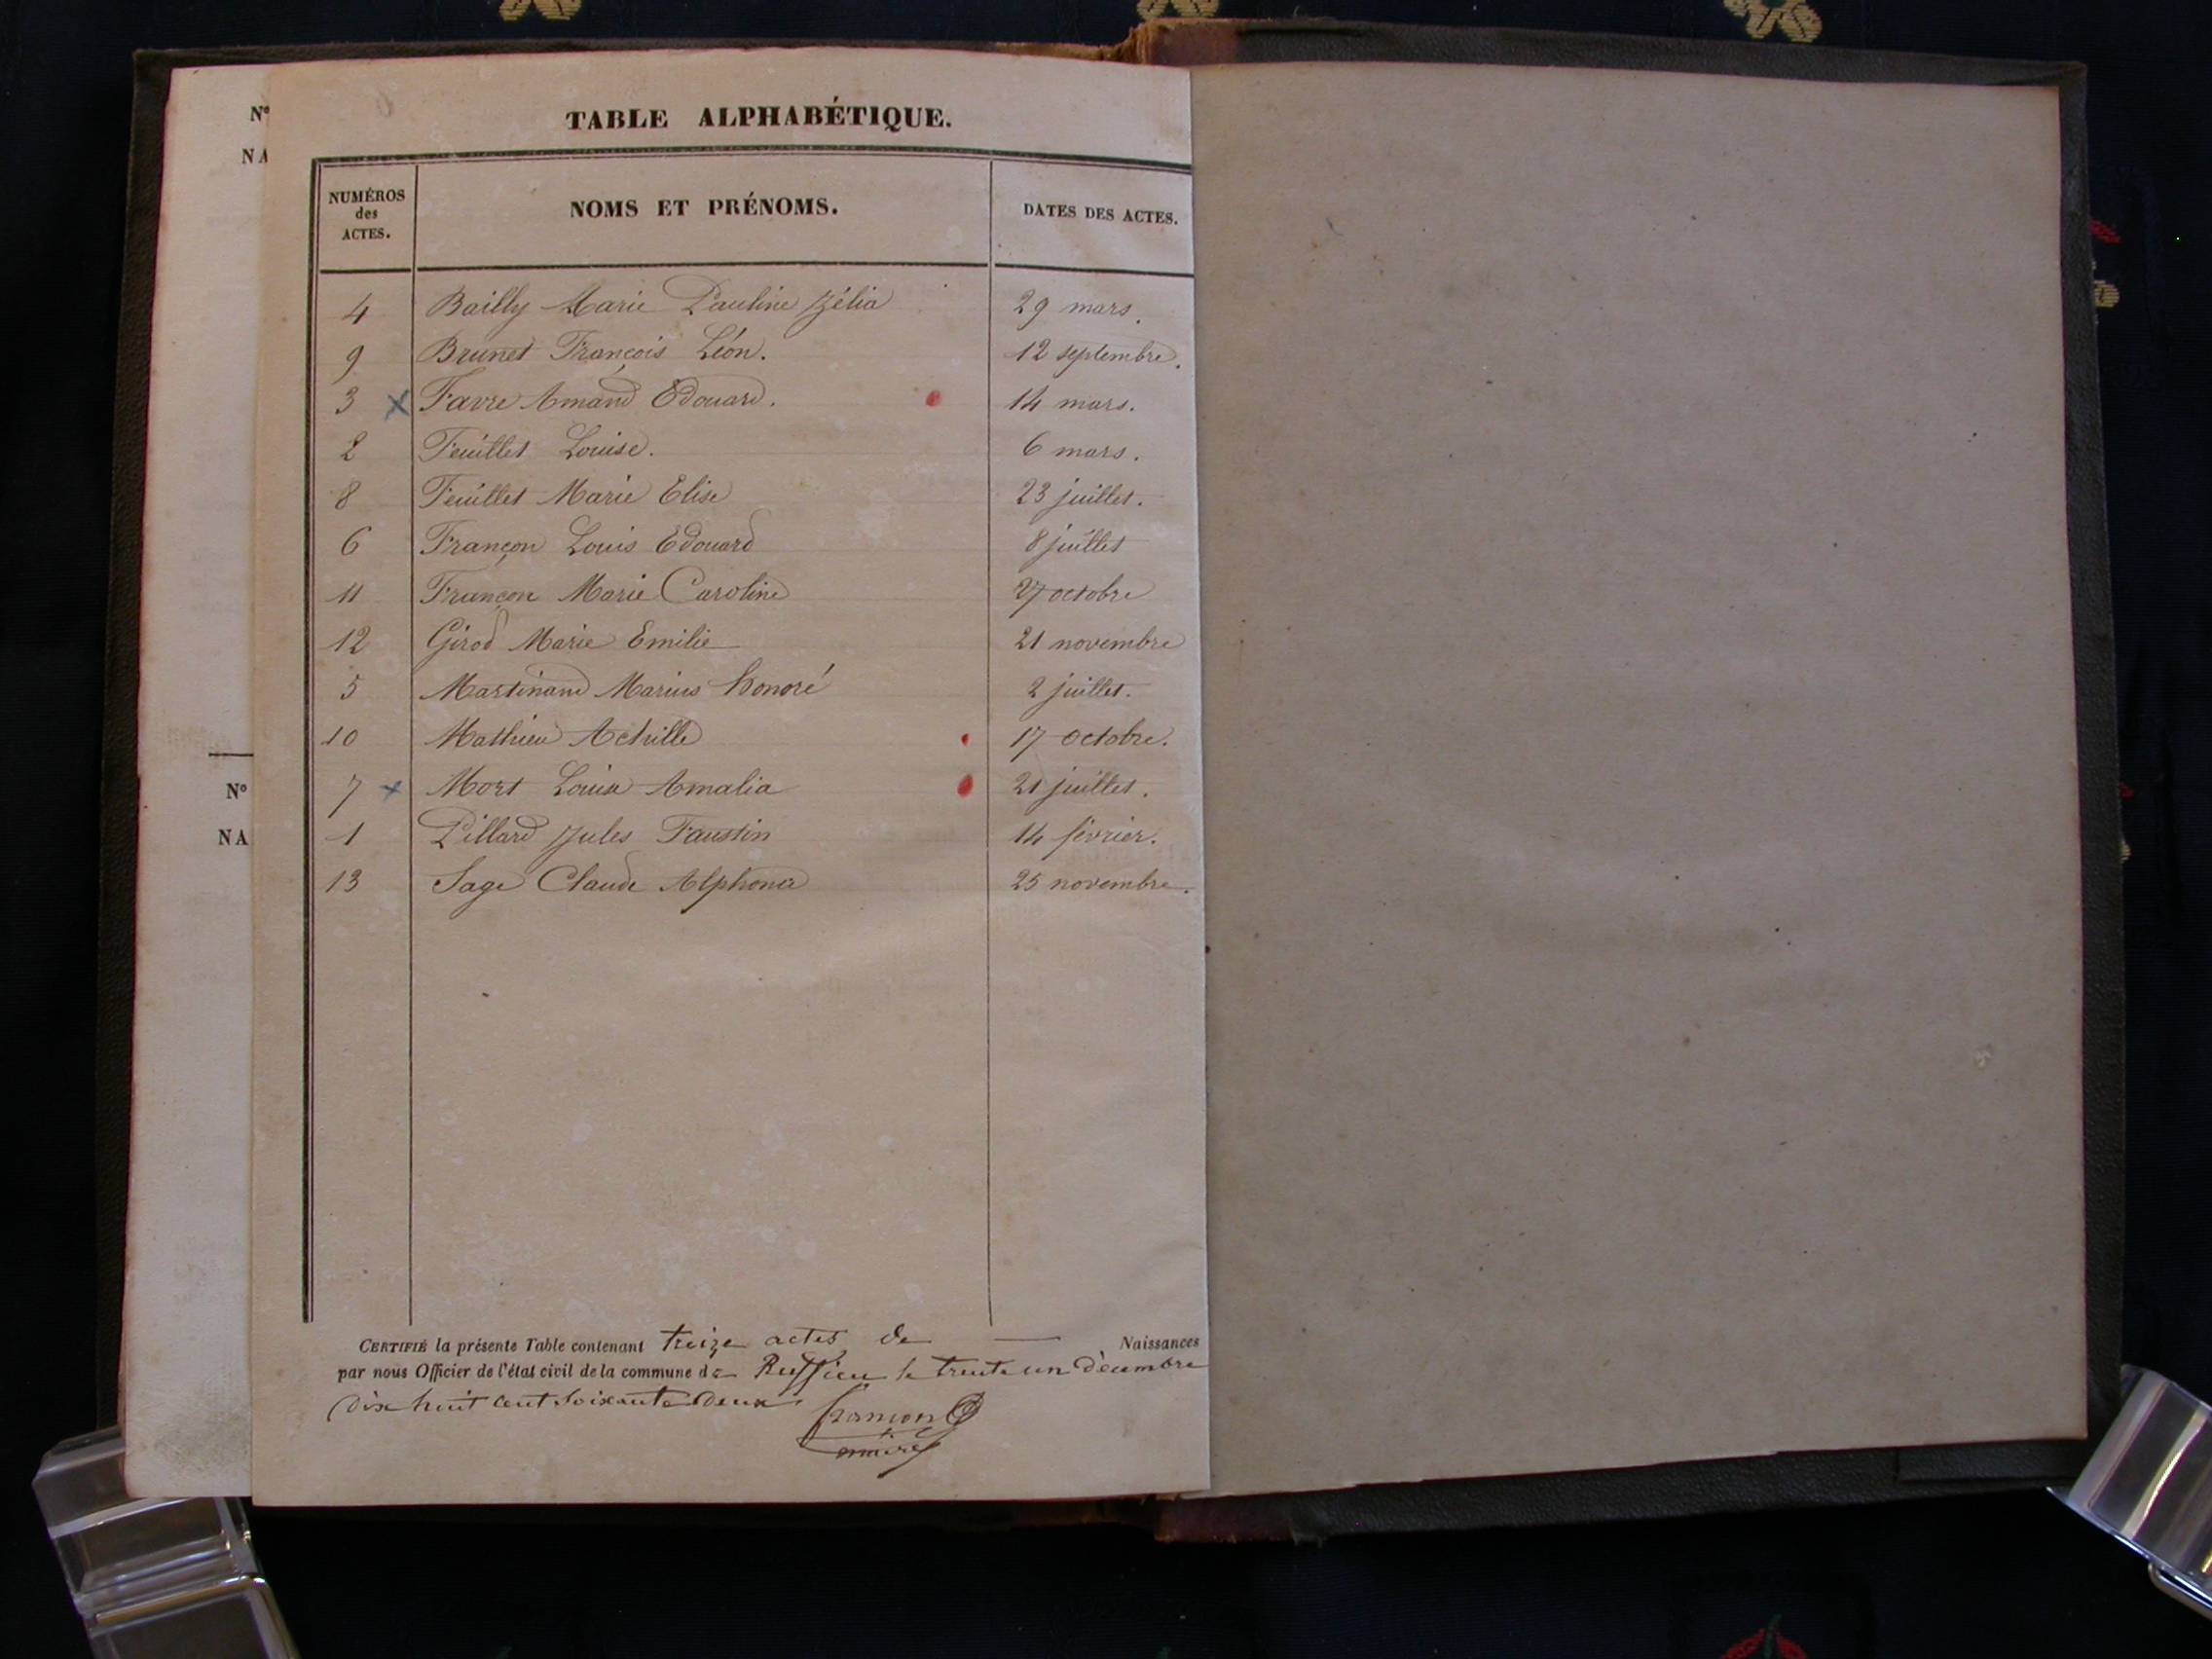 N°
NA
N°
NA
TABLE ALPHABÉTIQUE.
NUMÉROS des ACTES. NOMS ET PRÉNOMS. DATES DES ACTES.
4 Bailly Marie Pauline Zélia 29 mars.
9 Brunet François Léon. 12 septembre.
3 x Favre Amand Edouard. 14 mars.
2 Feuillet Louise. 6 mars.
8 Feuillet Marie Elise 23 juillet.
6 Françon Louis Edouard 8 juillet
11 Françon Marie Caroline 27 octobre
12 Girod Marie Emilie 21 novembre
5 Martinand Marius honoré 2 juillet.
10 Mathieu Achille 17 octobre.
7 x Mort Louisa Amalia 21 juillet.
1 Pillard Jules Faustin 14 février.
13 Sage Claude Alphonse 25 novembre.
CERTIFIÉ la présente Table contenant treize actes de Naissances
par nous Officier de l'état civil de la commune de Ruffieu le trente un décembre
dix huit cent soixante deux. françon
maire